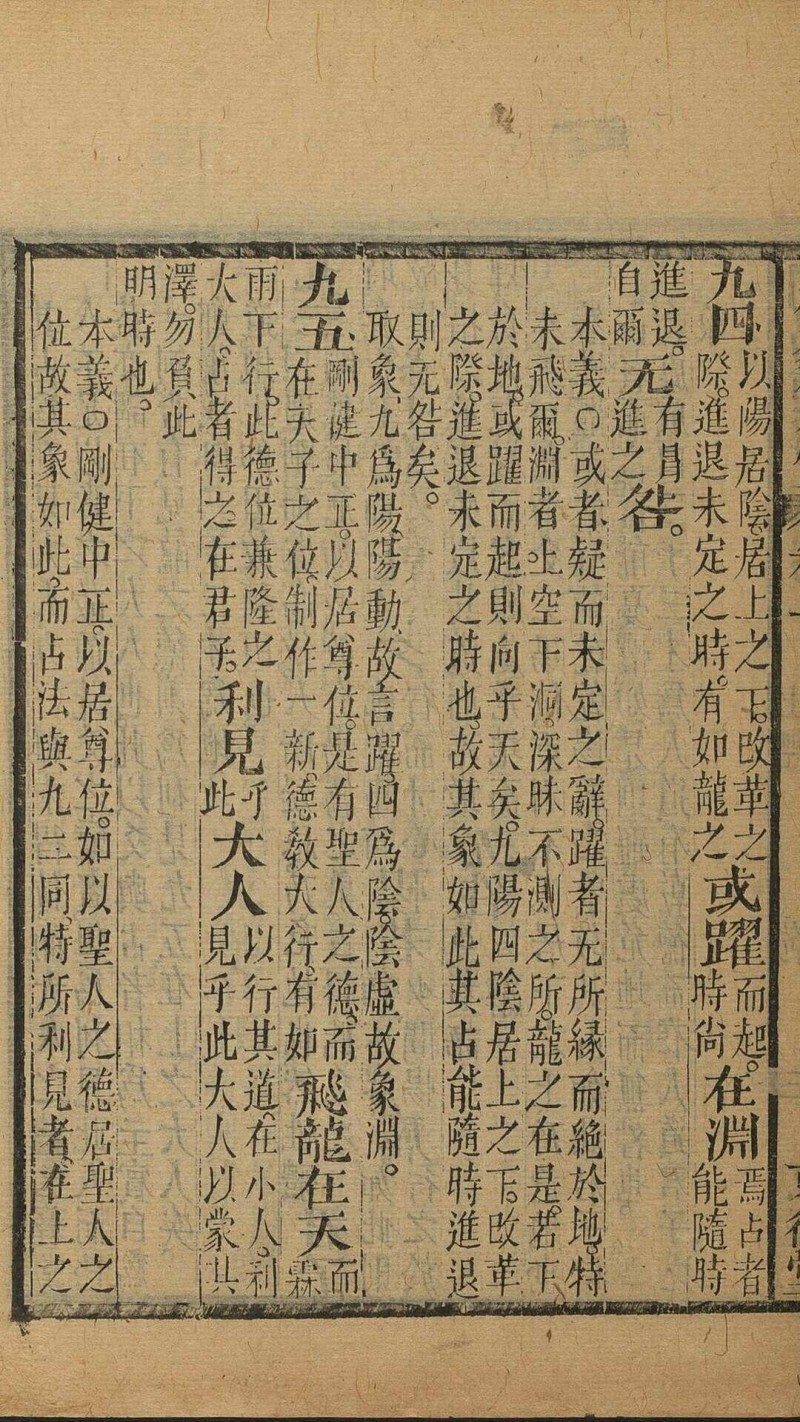 九四以陽居陰。居上之下。改革之際。進退未定之時。有如龍之或躍而起。時尚在淵焉占者能隨時
進退。自爾无有昌進之咎。
本義○或者、疑而未定之辭。躍者无所緣而絕於地。特
未飛爾。淵者上空下洞。深昧不測之所。龍之在是。若下
於地。或躍而起則向乎天矣。九陽四陰居上之下。改革
之際。進退未定之時也。故其象如此其占能隨時進退
則无咎矣。
取象、九爲陽。陽動、故言躍。四爲陰。陰虛故象淵。
九五剛健中正。以居尊位。是有聖人之德。而在天子之位。制作一新。德敎大行。有如飛龍在天而霖
雨下行。此德位兼隆之大人。占者得之在君子。利見乎此大人以行其道。在小人。利見乎此大人以蒙其
澤。勿負此明時也。
本義○剛健中正。以居尊位。如以聖人之德居聖人之
位故其象如此。而占法與九二同。特所利見者。在上之